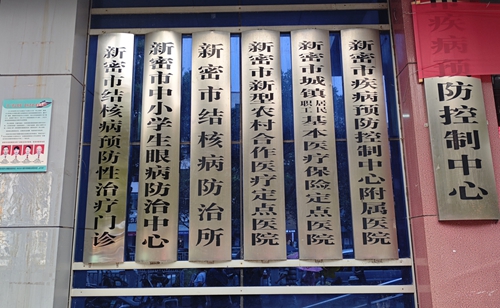 新密市结核病预防性治疗门诊
新密市中小学生眼病防治中心
新密市结核病防治所
新密市新型农村合作医疗定点医院
新密市城镇职工居民基本医疗保险定点医院
新密市疾病预防控制中心附属医院
疾病预防控制中心